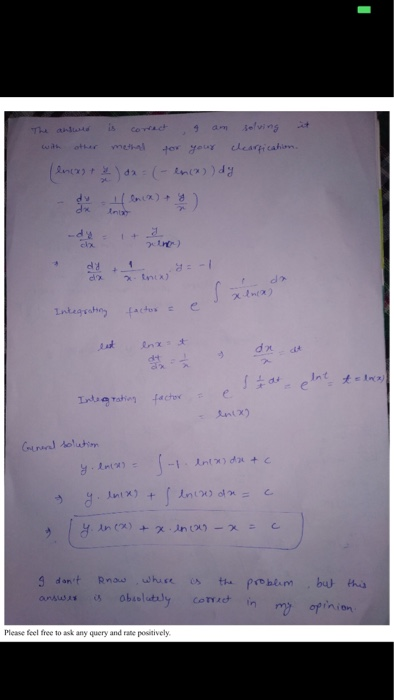 The answer is correct, I am solving it
with other method for your clearfication.
(ln(x) + y/x) dx = (- ln(x)) dy
- dy/dx = 1/ln(x) (ln(x) + y/x)
- dy/dx = 1 + y/(x ln(x))
dy/dx + 1/(x. ln(x)) y = -1
Integrating factor = e^∫ 1/(x ln(x)) dx
let ln x = t
dt/dx = 1/x ⇒ dx/x = dt
Integrating factor = e^∫ 1/t dt = e^ln t = t = ln(x)
= ln(x)
General solution
y. ln(x) = ∫ -1. ln(x) dx + c
⇒ y. ln(x) + ∫ ln(x) dx = c
⇒ y. ln(x) + x. ln(x) - x = c
I don't know where is the problem, but this
answer is absolutely correct in my opinion
Please feel free to ask any query and rate positively.